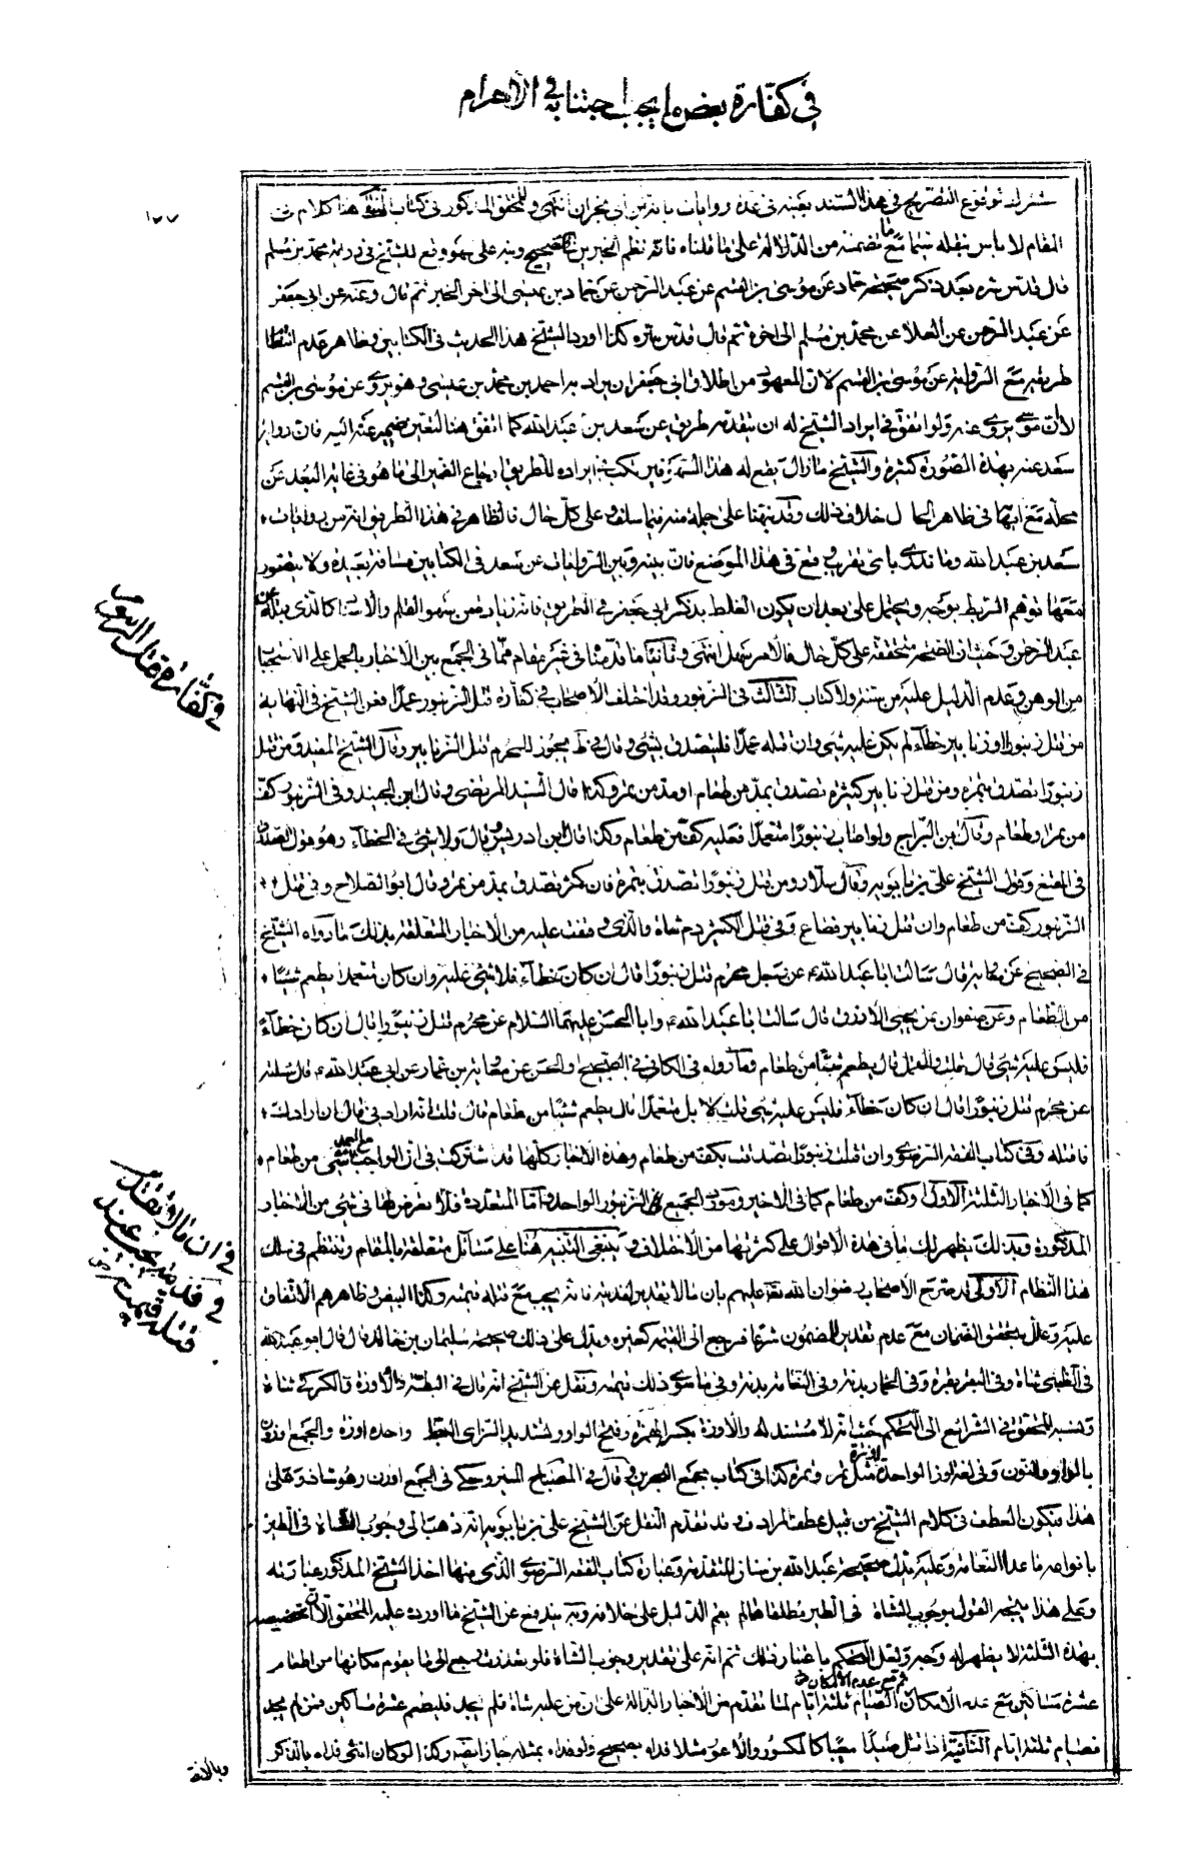 في كفّارة بعض ما يجب اجتنابه في الاحرام
١٧٧
المقام لا باس بنقله سيما مع ما تضمنه من الدلالة على ما قلناه فانه نظم الخبرين في الصحيح ونبه على سهو وقع للشيخ في رواية محمد بن مسلم
قال قدس سره بعد ذكر صحيحة حماد عن موسى بن القسم عن عبد الرحمن عن حماد بن عيسى الى اخر الخبر ثم قال وعنه عن ابي جعفر
عن عبد الرحمن عن العلا عن محمد بن مسلم الى اخره ثم قال قدس سره كذا اورد الشيخ هذا الحديث في الكتابين وظاهر عدم انتظام
طريقه مع الرواية عن موسى بن القسم لان المعهود من اطلاق ابي جعفر ان يراد به احمد بن محمد بن عيسى وهو يروي عن موسى بن القسم
لا ان موسى يروي عنه ولو اتفق في ايراد الشيخ له ان يتقدمه طريق عن سعد بن عبد الله كما اتفق هنا لتعين ضمير عنه اليه فان رواية
سعد عنه بهذه الصورة كثيرة والشيخ ما زال يقع له هذا السهو فيرتكب في ايراده للطريق ارجاع الضمير الى ما هو في غاية البعد عن
محله مع ابهام في ظاهر الحال خلاف ذلك وقد نبهنا على جملة منه فيما سلف وعلى كل حال فالظاهر في هذا الطريق انه من روايات
سعد بن عبد الله وما ندري باي تقريب وقع في هذا الموضع فان بينه وبين الروايات عن سعد في الكتابين مسافة بعيدة ولا يتصور
معها توهم الربط بوجه ويحتمل على بعد ان يكون الغلط بذكر ابي جعفر في الطريق فانه زيادة من سهو القلم والاسناد كالذي قبله عن
عبد الرحمن وحيث ان الصحة متحققة على كل حال فالامر سهل انتهى وثانيا ما قدمنا في غير مقام مما في الجمع بين الاخبار بالحمل على الاستحباب
من الوهن وعدم الدليل عليه من سنة ولا كتاب الثالث في الزنبور وقد اختلف الاصحاب في كفارة قتل الزنبور عمدا فعن الشيخ في النهاية
من قتل زنبورا او زنابير خطأ لم يكن عليه شيء وان قتله عمدا فليتصدق بشيء وقال في ط يجوز للمحرم قتل الزنابير وقال الشيخ المفيد من قتل
زنبورا تصدق بتمرة ومن قتل زنابير كثيرة تصدق بمد من طعام او مد من تمر وكذا قال السيد المرتضى وقال ابن الجنيد وفي الزنبور كف
من تمر او طعام وقال ابن البراج ولو اصاب زنبورا متعمدا فعليه كف من طعام وكذا قال ابن ادريس وقال ولا شيء في الخطأ وهو قول الصدوق
في المقنع وقول الشيخ علي بن بابويه وقال سلار ومن قتل زنبورا تصدق بتمرة فان كثر تصدق بمد من تمر وقال ابو الصلاح وفي قتل
الزنبور كف من طعام وان قتل زنابير فصاع وفي قتل الكثير دم شاة والذي وقفت عليه من الاخبار المتعلقة بذلك ما رواه الشيخ
في الصحيح عن معاوية قال سالت ابا عبد الله ع عن رجل محرم قتل زنبورا قال ان كان خطأ فلا شيء عليه وان كان متعمدا يطعم شيئا
من الطعام وعن صفوان عن يحيى الازرق قال سالت ابا عبد الله ع وابا الحسن عليهما السلام عن محرم قتل زنبورا قال ان كان خطأ
فليس عليه شيء قال قلت فالعمد قال يطعم شيئا من طعام وما رواه في الكافي في الصحيح والحسن عن معاوية بن عمار عن ابي عبد الله ع قال سالته
عن محرم قتل زنبورا قال ان كان خطأ فليس عليه شيء قلت لا بل متعمدا قال يطعم شيئا من طعام قال قلت انه ارادني قال ان ارادك
فاقتله وفي كتاب الفقه الرضوي وان قتلت زنبورا تصدقت بكف من طعام وهذه الاخبار كلها قد اشتركت في ان الواجب مع العمد شيء من طعام
كما في الاخبار الثلثة الاول وكف من طعام كما في الاخير ومورد الجميع الزنبور الواحد واما المتعددة فلا تعرض لها في شيء من الاخبار
المذكورة وبذلك يظهر لك ما في هذه الاقوال على كثرتها من الاختلاف وينبغي التنبيه هنا على مسائل متعلقة بالمقام وتنتظم في سلك
هذا النظام الاولى قد صرح الاصحاب رضوان الله عليهم بان ما لا تقدير لفديته فانه يجب مع قتله قيمته وكذا البيض وظاهرهم الاتفاق
عليه وعلل بتحقق الضمان مع عدم تقدير المضمون شرعا فيرجع الى القيمة كغيره ويدل على ذلك صحيحة سليمان بن خالد قال قال ابو عبد الله
في الظبي شاة وفي البقرة بقرة وفي الحمار بدنة وفي النعامة بدنة وفي ما سوى ذلك قيمته ونقل عن الشيخ انه قال في البطة والاوزة والكركي شاة
ونسبه المحقق في الشرائع الى التحكم حيث انه لا مستند له والاوزة بكسر الهمزة وفتح الواو وتشديد الزاي البط واحده اوزة والجمع اوزون
بالواو والنون وفي لغة الوز الواحدة وزة مثل تمر وتمرة كذا في كتاب مجمع البحرين وقال في المصباح المنير وحكي في الجمع اوزون وهو شاذ وعلى
هذا فيكون العطف في كلام الشيخ من قبيل عطف المرادف وقد تقدم النقل عن الشيخ علي بن بابويه انه ذهب الى وجوب الشاة في الطير
بانواعه ما عدا النعامة وعليه تدل صحيحة عبد الله بن سنان المتقدمة وعبارة كتاب الفقه الرضوي الذي منها اخذ الشيخ المذكور عبارته
وعلى هذا يتجه القول بوجوب الشاة في الطير مطلقا ما لم يقم الدليل على خلافه وبه يندفع عن الشيخ ما اورده عليه المحقق الا ان تخصيصه
بهذه الثلثة لا يظهر له وجه ولعل التحكم باعتبار ذلك ثم انه على تقدير وجوب الشاة فلو تعذرت رجع الى ما يقوم مكانها من اطعام
ثم مع عدم الامكان
عشرة مساكين مع عدم الامكان الصيام ثلثة ايام لما تقدم من الاخبار الدالة على ان من عليه شاة فلم يجد فليطعم عشرة مساكين فمن لم يجد
فصيام ثلثة ايام الثانية اذا قتل صيدا معيبا كالمكسور والاعور مثلا فداه بصحيح ولو فداه بمثله جاز ايضا وكذا لو كان انثى فداه بالذكر
وبالانثى
في كفّارة قتل الزنبور
في ان ما لا تقدير
في فديته يجب عند
قتله قيمته